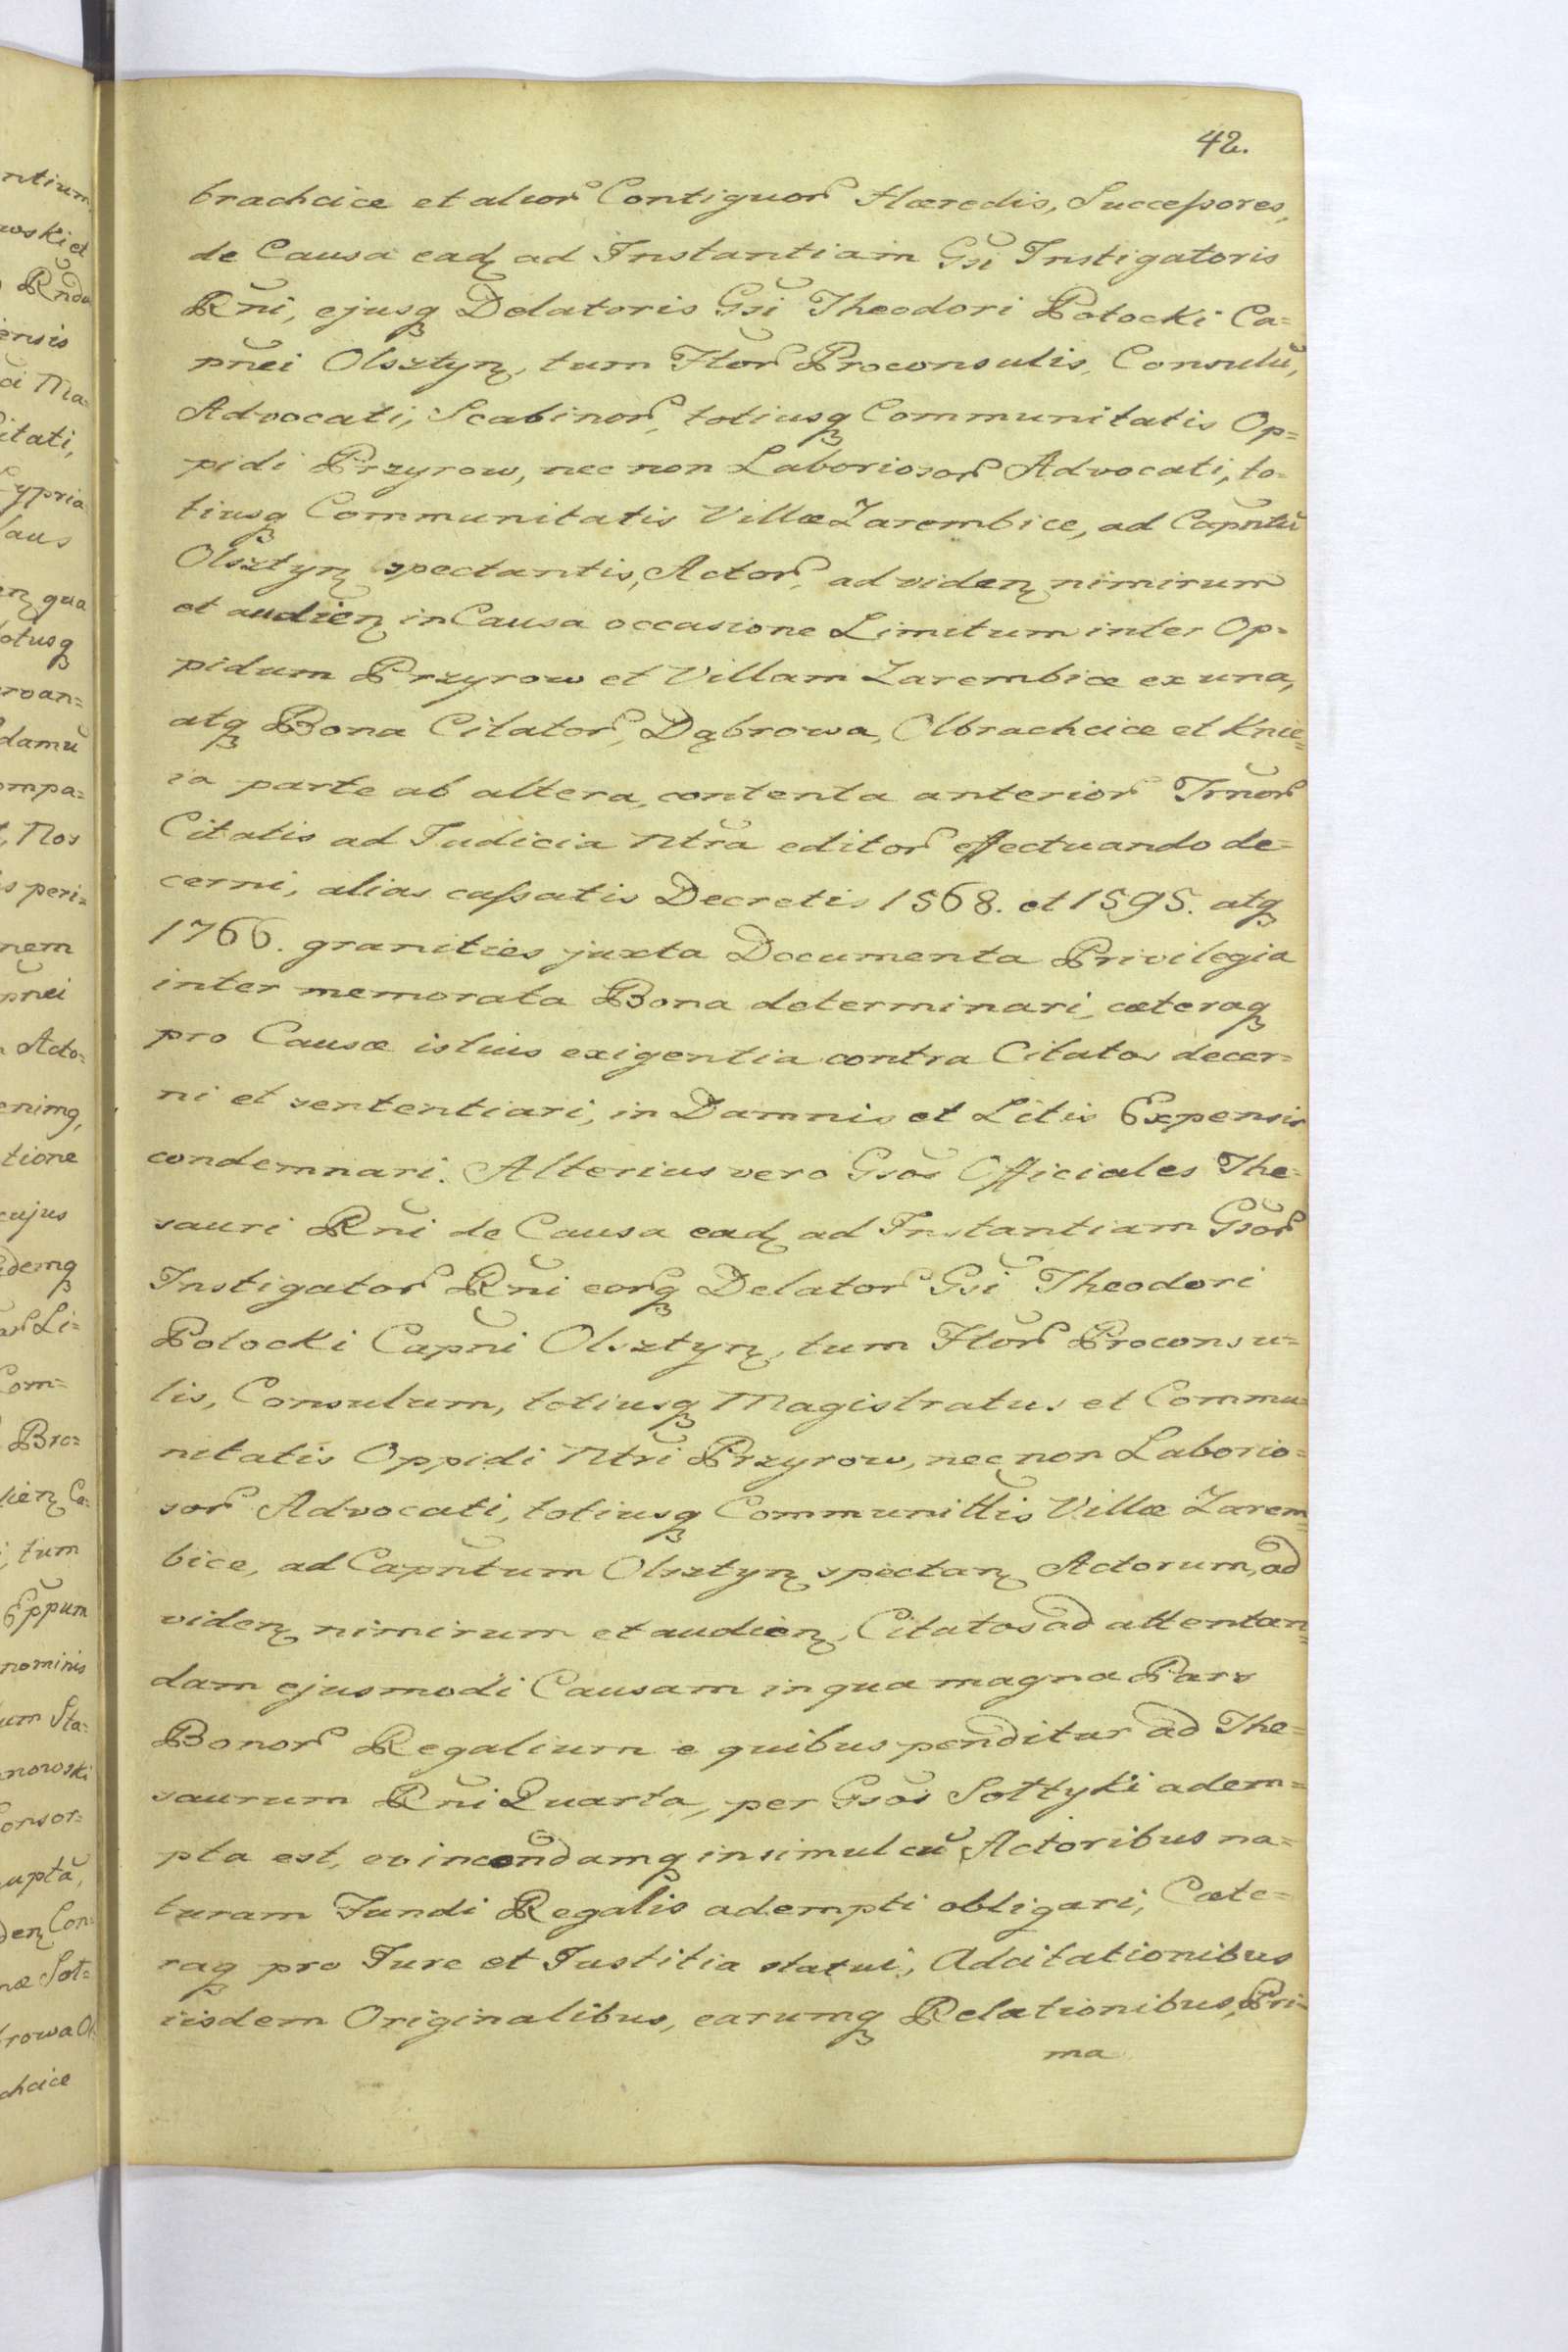 42.
brachcice et alior Contiguor Hæredis, Successores,
de Causa ead ad Instantiam Gsi Instigatoris
Rni, ejusq Delatoris Gsi Theodori Potocki Ca=
pnei Olsztyn, tum Htor Proconsulis, Consulũ,
Advocati, Scabinor, totiusq Communitatis Op=
pidi Przyrow, nec non Laboriosor Advocati, to=
tiusq Communitatis Villæ Zarembice, ad Capntũ
Olsztyn spectantis, Actor, ad viden nimirum
et audien in Causa occasione Limitum inter Op=
pidum Przyrow et Villam Zarembice ex una,
atq Bona Citator, Dąbrowa, Olbrachcice et Knie=
ia parte ab altera, contenta anterior Trnor
Citatis ad Judicia Ntra editor effectuando de=
cerni, alias cassatis Decretis 1568. et 1595. atq
1766. granities juxta Documenta Privilegia
inter memorata Bona determinari, cæteraq
pro Causæ istius exigentia contra Citatos decer=
ni et sententiari, in Damnis et Litis Expensis
condemnari. Alterius vero Gsos Officiales The=
sauri Rni de Causa ead ad Instantiam Gsor
Instigator Rni eorq Delator Gsi Theodori
Potocki Capni Olsztyn, tum Htor Proconsu=
lis, Consulum, totiusq Magistratus et Commu=
nitatis Oppidi Ntri Przyrow, nec non Laborio=
sor Advocati, totiusq Communittis Villæ Zarem=
bice, ad Capntum Olsztyn spectan Actorum, ad
viden nimirum et audien, Citatos ad attentan=
dam ejusmodi Causam in qua magna Pars
Bonor Regalium e quibus penditur ad The=
saurum Rni Quarta, per Gsos Sołtyki adem=
pta est, evincendamq insimul cũ Actoribus na=
turam Fundi Regalis adempti obligari, Cæte=
raq pro Jure et Justitia statui, Adcitationibus
iisdem Originalibus, earumq Relationibus, Pri=
ma